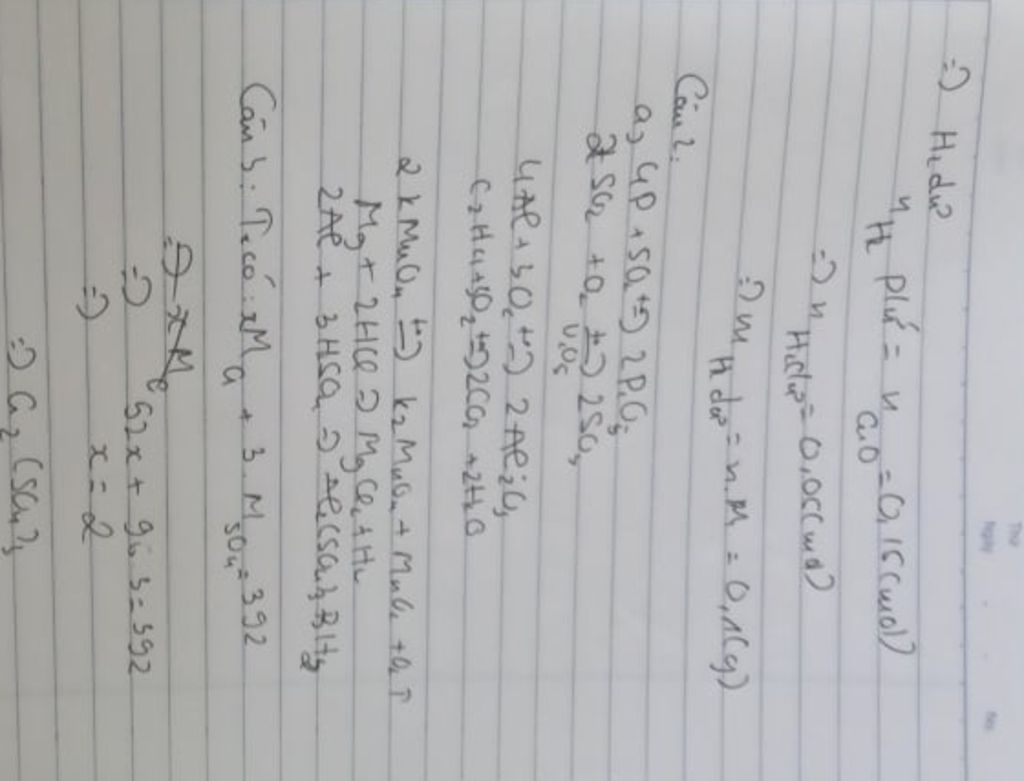 =) H₂ dư
n H₂ pứ = n CuO = 0,15 (mol)
=) n H₂ dư = 0,05 (mol)
=) m H₂ dư = n.M = 0,1 (g)
Câu 2:
a, 4P + 5O₂ t°=) 2P₂O₅
2SO₂ + O₂ t°=) V₂O₅ 2SO₃
4Al + 3O₂ t°=) 2Al₂O₃
C₂H₄ + 3O₂ t°=) 2CO₂ + 2H₂O
2KMnO₄ t°=) K₂MnO₄ + MnO₂ + O₂ ↑
Mg + 2HCl =) MgCl₂ + H₂
Câu 3: Ta có: xM + 3.M SO₄ = 392
=) 52x + 96.3 = 392
=) x = 2
=) Cr₂(SO₄)₃